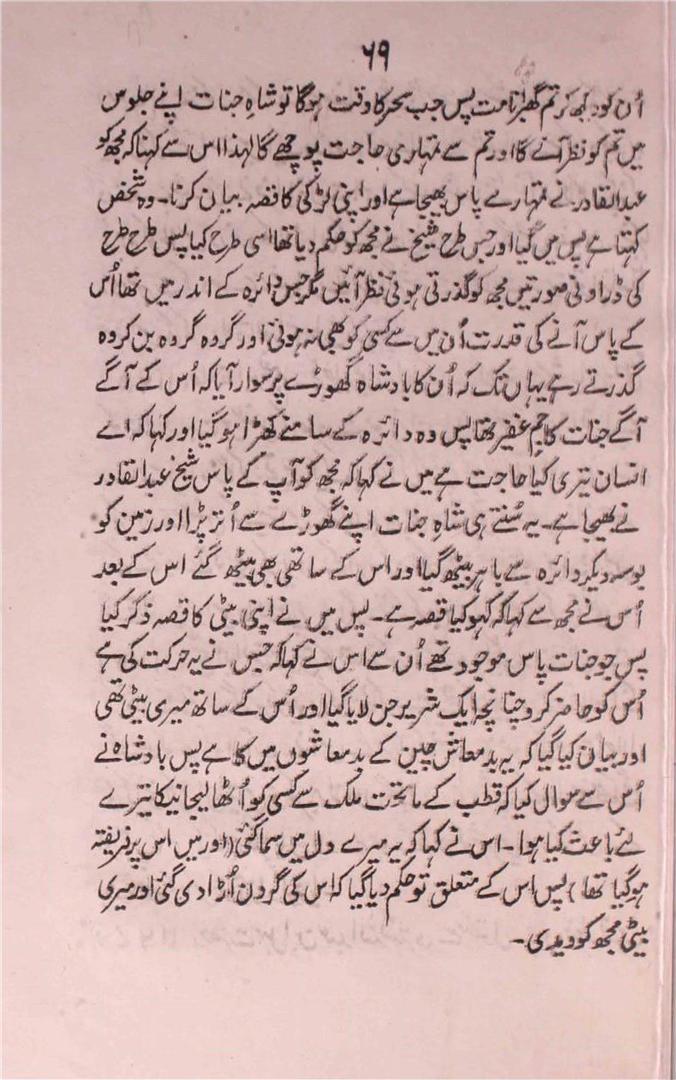 ۶۹
اُن کو دیکھ کر تم گھبرانا مت پس جب سحر کا وقت ہوگا تو شاہِ جنات اپنے جلوس
میں تم کو نظر آئے گا اور تم سے تمہاری حاجت پوچھے گا لہذا اس سے کہنا کہ مجھ کو
عبدالقادر نے تمہارے پاس بھیجا ہے اور اپنی لڑکی کا قصہ بیان کرنا۔ وہ شخص
کہتا ہے پس میں گیا اور جس طرح شیخ نے مجھ کو حکم دیا تھا اسی طرح کیا پس طرح طرح
کی ڈراونی صورتیں مجھ کو گذرتی ہوئی نظر آئیں مگر جس دائرہ کے اندر میں تھا اُس
کے پاس آنے کی قدرت اُن میں سے کسی کو بھی نہ ہوئی اور گروہ گروہ بن کر وہ
گذرتے رہے یہاں تک کہ اُن کا بادشاہ گھوڑے پر سوار آیا کہ اُس کے آگے
آگے جنات کا جم غفیر تھا پس وہ دائرہ کے سامنے کھڑا ہوگیا اور کہا کہ اے
انسان تیری کیا حاجت ہے میں نے کہا کہ مجھ کو آپ کے پاس شیخ عبدالقادر
نے بھیجا ہے۔ یہ سُنتے ہی شاہِ جنات اپنے گھوڑے سے اُتر پڑا اور زمین کو
بوسہ دیکر دائرہ سے باہر بیٹھ گیا اور اس کے ساتھی بھی بیٹھ گئے اس کے بعد
اُس نے مجھ سے کہا کہ کہو کیا قصہ ہے۔ پس میں نے اپنی بیٹی کا قصہ ذکر کیا
پس جو جنات پاس موجود تھے اُن سے اس نے کہا کہ جس نے یہ حرکت کی ہے
اُس کو حاضر کرو چنانچہ ایک شریر جن لایا گیا اور اُس کے ساتھ میری بیٹی تھی
اور بیان کیا گیا کہ یہ بدمعاش چین کے بدمعاشوں میں کا ہے پس بادشاہ نے
اُس سے سوال کیا کہ قطب کے ماتحت ملک سے کسی کو اُٹھا لیجانیکا تیرے
لئے باعث کیا ہوا۔ اس نے کہا کہ یہ میرے دل میں سما گئی (اور میں اس پر فریفتہ
ہوگیا تھا) پس اس کے متعلق تو حکم دیا گیا کہ اس کی گردن اُڑا دی گئی اور میری
بیٹی مجھ کو دیدی۔